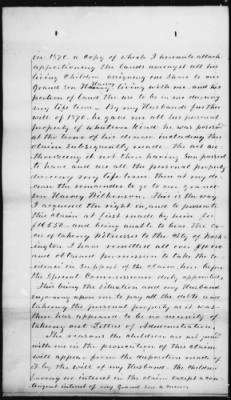 in 1870. a copy of which I herewith attach
apportioning the lands amongst all his
living Children assigning one share to our
Grand son Harvey living with me and his
portion of land the use to be in me during
my life time — By my Husbands further
will of 1870, he gave me all his personal
property of whatever kind he was possessed
at the time of his decease including this
claim subsequently made. The act au-
thorizing it not then having been passed
to have and use all the personal property
during my life time, then at my de-
cease the remainder to go to our grand
son Harvey Wilkinson. This is the way
I acquired the right in and to presente
this Claim at first made by him for
and being unable to bear the Ex-
pense of taking Witnesses to the City of Wash-
ington I have remitted all over
and obtained permission to take the Ev-
idence in support of the claim, here before
the Special Commissioner duly appointed.
This being the situation and my Husband
me to pay all the debts and
taking the personal property as it was
there has appeared to be no necessity of
taking out Letters of Administration.
The reasons the children are not joined
with me in the prosecution of this claim
will appear from the disposition made of
it by the will of my Husband. the Children
having no interest in the claim except a con-
tingent interest if my Grand son a minor